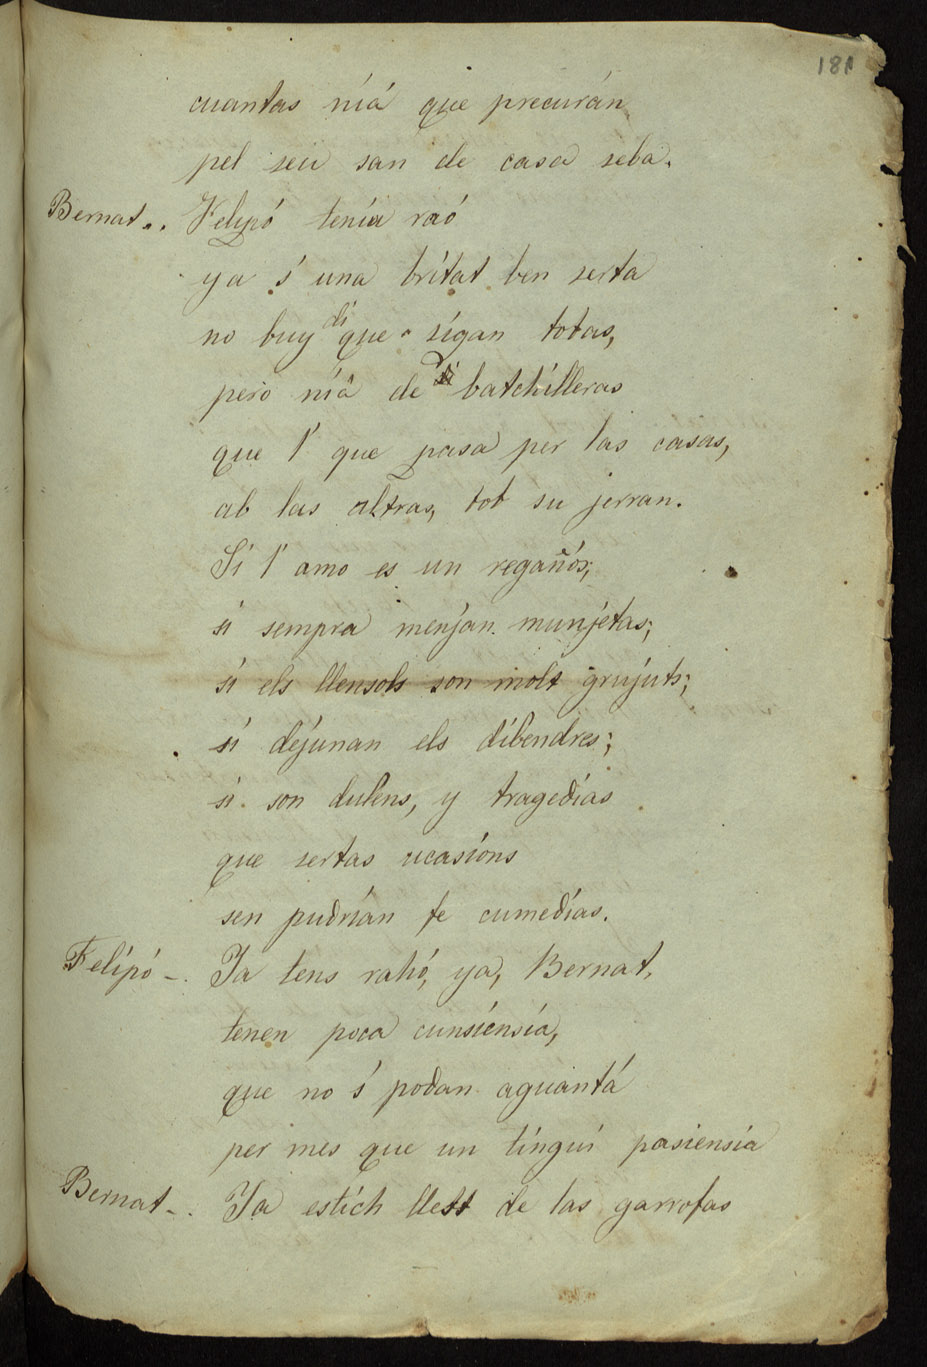 181
cuantas níá que precurán
pel seu san de casa seba.
Bernat.. Felipó tenía raó
ya s' una britat ben serta
no buy dí que sígan totas,
pero níá de batchílleras
que l' que pasa per las casas,
ab las altras, tot su jerran.
Sí l' amo es un regañós;
si sempra menjan munjetas;
si els llensols son molt grujuts;
si déjunan els dibendres;
si son dulens, y tragedías
que sertas ucasíons
sen pudrían fe cumedías.
Felípó -. Ja tens rahó, ya, Bernat,
tenen poca cunsiénsía,
que no s' podan aguantá
per mes que un tínguí pasiensía
Bernat -. Ja estích llest de las garrofas